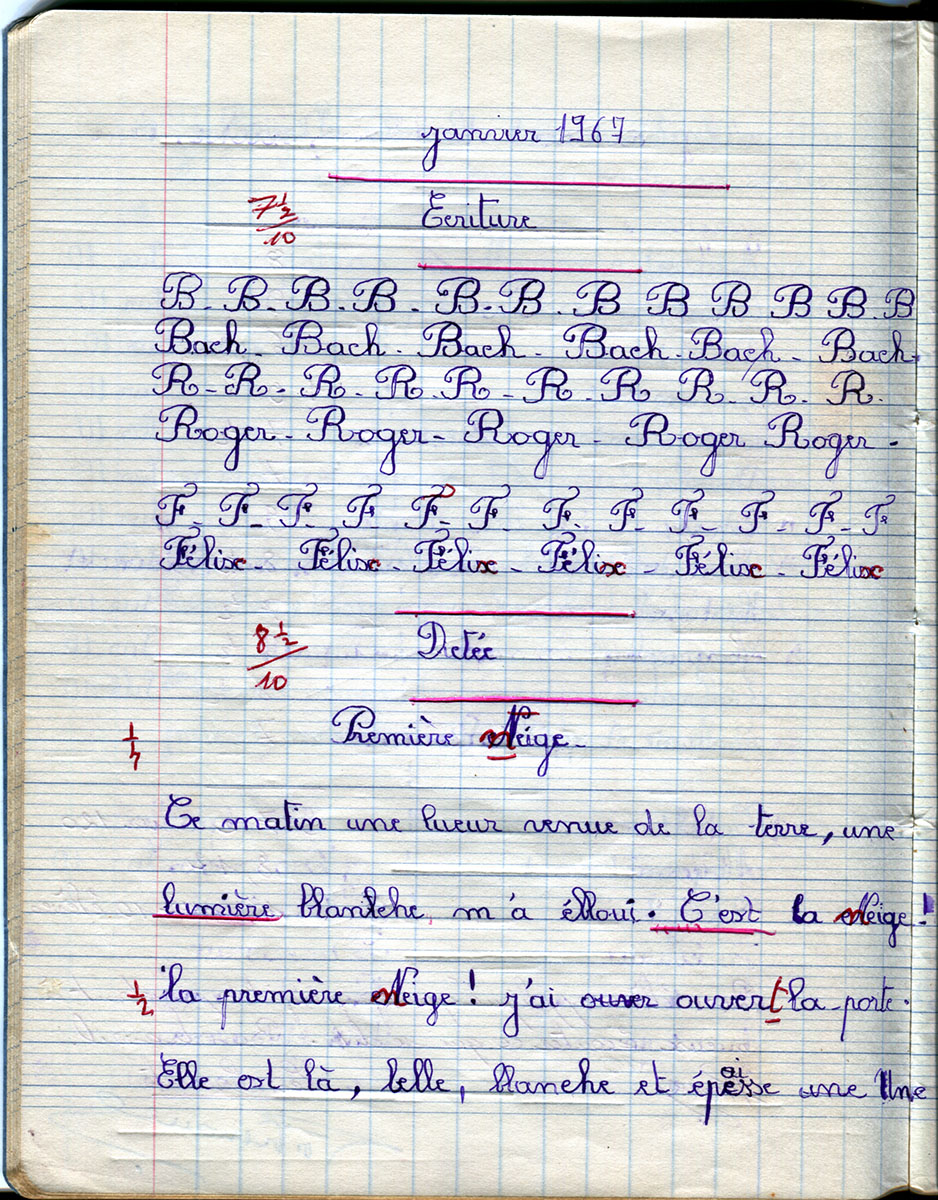 janvier 1967
7 1/2
10
Ecriture
B. B. B. B. B. B. B B B B B. B
Bach. Bach. Bach. Bach. Bach. Bach.
R. R. R. R. R. R. R R. R. R.
Roger - Roger - Roger - Roger Roger -
F. F. F. F F. F. F. F. F. F. F. F
Félix - Félix - Félix - Félix - Félix - Félix
8 1/2
10
Dictée
Première Neige -
Ce matin une lueur venue de la terre, une
lumière blanche m'a ébloui. C'est la Neige!
1/2 la première Neige! j'ai ouver ouvert la porte.
Elle est là, belle, blanche et épaisse une Une